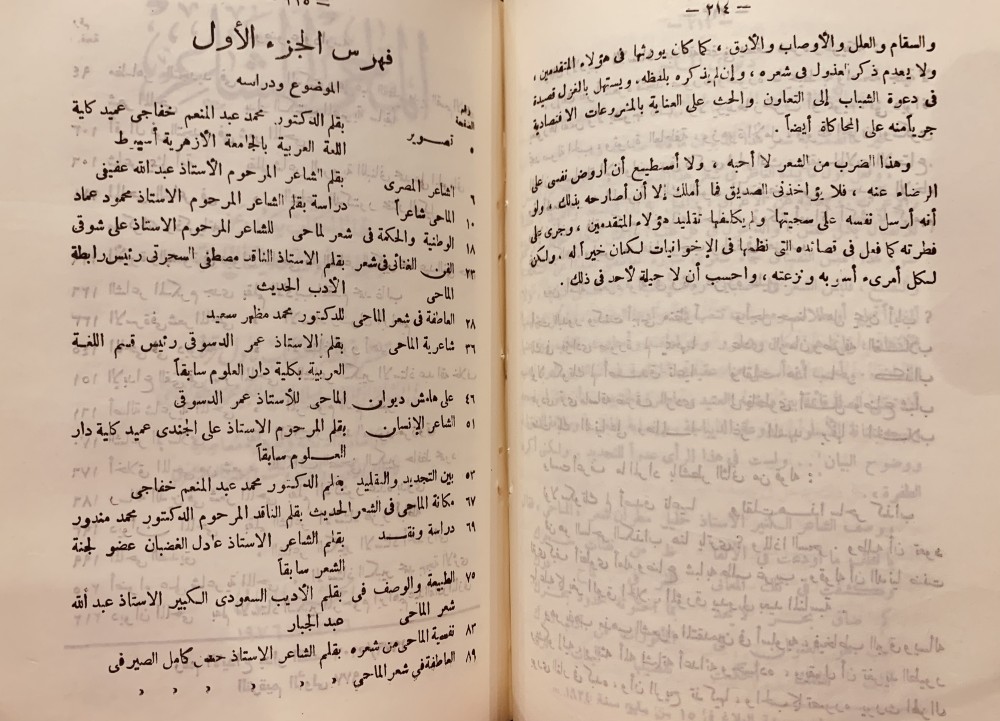 — ٢١٤ —
والسقام والعلل والأوصاب والأرق ، كما كان يورثها فى هؤلاء المتقدمين ،
ولا يعدم ذكر العذول فى شعره ، وإن لم يذكره بلفظه . ويستهل بالغزل قصيدة
فى دعوة الشباب إلى التعاون والحث على العناية بالمشروعات الاقتصادية
جريا منه على المحاكاة أيضاً .
وهذا الضرب من الشعر لا أحبه ، ولا أستطيع أن أروض نفسى على
الرضاء عنه ، فلا يؤاخذنى الصديق فما أملك إلا أن أصارحه بذلك ، ولو
أنه أرسل نفسه على سجيتها ولم يكلفها تقليد هؤلاء المتقدمين ، وجرى على
فطرته كما فعل فى قصائده التى نظمها فى الإخوانيات لكان خيراً له . ولكن
لكل أمرىء أسلوبه ونزعته ، واحسب أن لا حيلة لأحد فى ذلك .
— ٢١٥ —
فهرس الجزء الأول
رقم الصفحة الموضوع ودراسه
٥ تصوير بقلم الدكتور محمد عبد المنعم خفاجى عميد كلية
اللغة العربية بالجامعة الأزهرية أسيوط
٦ الشاعر المصرى بقلم الشاعر المرحوم الأستاذ عبد الله عفيفى
١٠ الماحى شاعراً دراسة بقلم الشاعر المرحوم الاستاذ محمود عماد
١٨ الوطنية والحكمة فى شعر لماحى للشاعر المرحوم الاستاذ على شوقى
٢٣ الفن الغنائى فى شعر بقلم الاستاذ الناقد مصطفى السحرتى رئيس رابطة
الماحى الأدب الحديث
٢٨ العاطفة فى شعر الماحى للدكتور محمد مظهر سعيد
٣٦ شاعرية الماحى بقلم الاستاذ عمر الدسوقى رئيس قسم اللغة
العربية بكلية دار العلوم سابقاً
٤٦ على هامش ديوان الماحى للأستاذ عمر الدسوقى
٥١ الشاعر الإنسان بقلم المرحوم الاستاذ على الجندى عميد كلية دار
العلوم سابقاً
٥٣ بين التجديد والتقليد بقلم الدكتور محمد عبد المنعم خفاجى
٦٧ مكانة الماحى فى الشعر الحديث بقلم الناقد المرحوم الدكتور محمد مندور
٦٩ دراسة ونقد بقلم الشاعر الاستاذ عادل الغضبان عضو لجنة
الشعر سابقاً
٧٥ الطبيعة والوصف فى بقلم الأديب السعودى الكبير الاستاذ عبد الله
شعر الماحى عبد الجبار
٨٣ نفسية الماحى من شعره بقلم الشاعر الاستاذ حسن كامل الصيرفى
٨٩ العاطفة فى شعر الماحى » » » » »